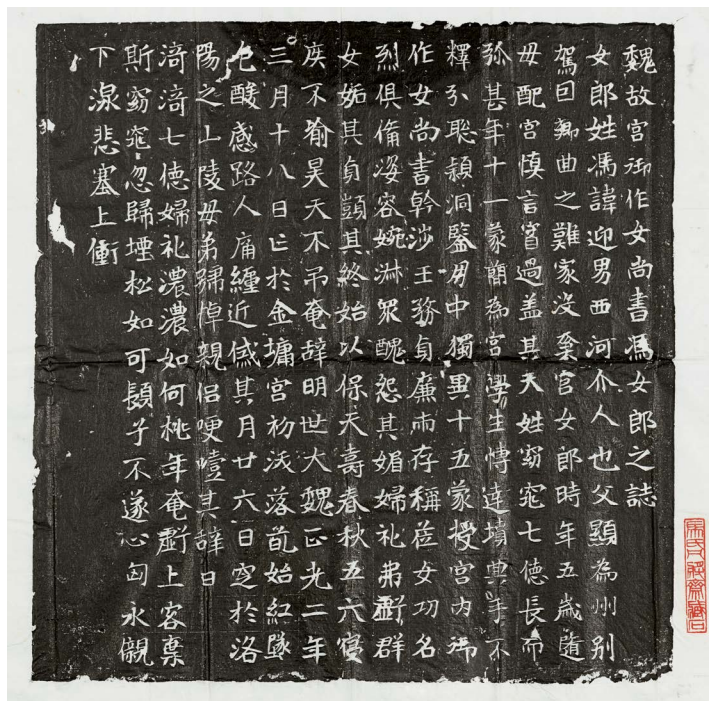 魏故宮御作女尚書馮女郎之誌
女郎姓馮諱迎男西河介人也父顯為州別
駕因鄉曲之難家沒奚官女郎時年五歲隨
母配宮慎言寡過蓋其天姓窈窕七德長而
弥甚年十一蒙簡為宮學生博達墳典手不
釋卷聰穎洞鑒朋中獨異十五蒙授宮內御
作女尚書幹涉王務貞廉兩存稱莅女功名
烈俱備姿容婉淋眾醜怨其媚婦礼弗虧群
女妬其貞顗其終始以保天壽春秋五六寢
疾不喻昊天不吊奄辭明世大魏正光二年
三月十八日亡於金墉宮初沃落凱始紅墜
色酸感路人痛纏近慼其月廿六日窆於洛
陽之山陵母弟號悼親侶哽噎其辭曰
漪漪七德婦礼濃濃如何桃年奄虧上容棄
斯窈窕忽歸堙松如可贖兮不遂心匈永儭
下湶悲塞上衝